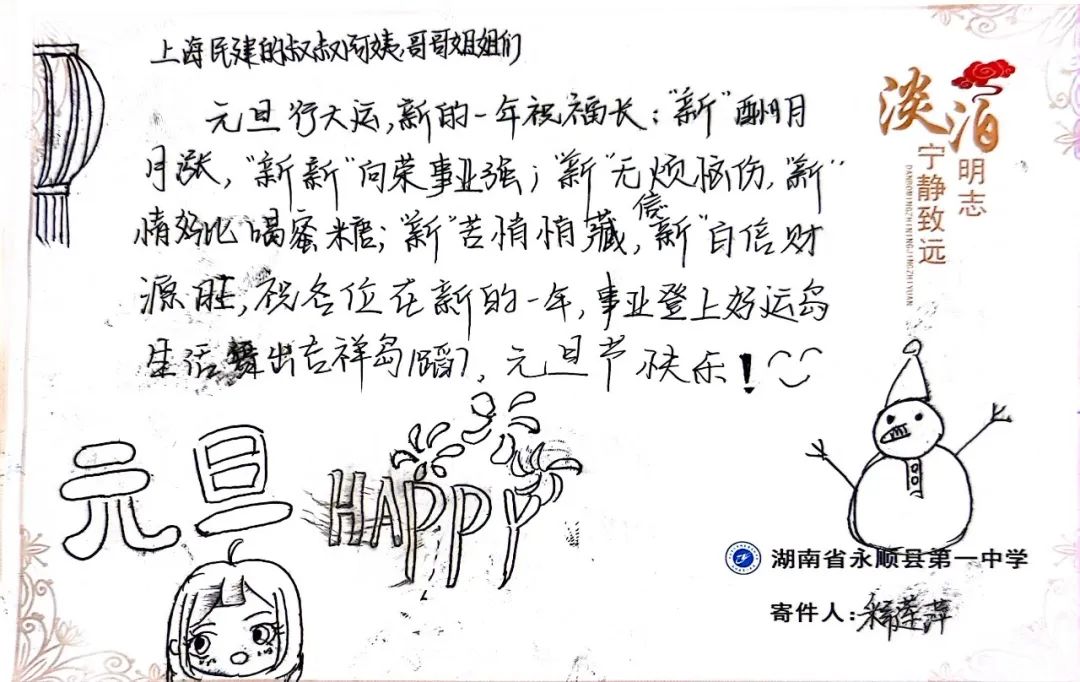 上海民建的叔叔阿姨,哥哥姐姐们
元旦行大运,新的一年祝福长:"新"酬月
月涨,"新新"向荣事业强;"新"无烦恼伤,"新"
情好比喝蜜糖;"新"苦悄悄藏,"新"自信财
信
源旺,祝各位在新的一年,事业登上好运岛
生活舞出吉祥岛蹈,元旦节快乐!
淡泊
明志
宁静致远
DANBOMINGZHININGJINGZHIYUAN
元旦
HAPPY
湖南省永顺县第一中学
寄件人:莲萍